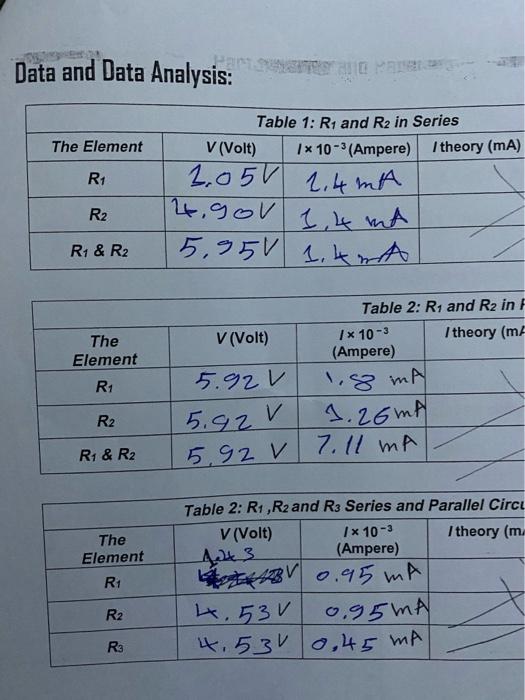 Data and Data Analysis:
Table 1: R1 and R2 in Series
The Element V (Volt) I × 10⁻³ (Ampere) I theory (mA)
R1 1.05V 1.4 mA
R2 4.90V 1.4 mA
R1 & R2 5.95V 1.4 mA
Table 2: R1 and R2 in
The Element V (Volt) I × 10⁻³ (Ampere) I theory (mA
R1 5.92 V 1.88 mA
R2 5.92 V 1.26 mA
R1 & R2 5.92 V 7.11 mA
Table 2: R1 ,R2 and R3 Series and Parallel Circu
The Element V (Volt) I × 10⁻³ (Ampere) I theory (m
R1 V 0.95 mA
R2 4.53V 0.95 mA
R3 4.53V 0.45 mA